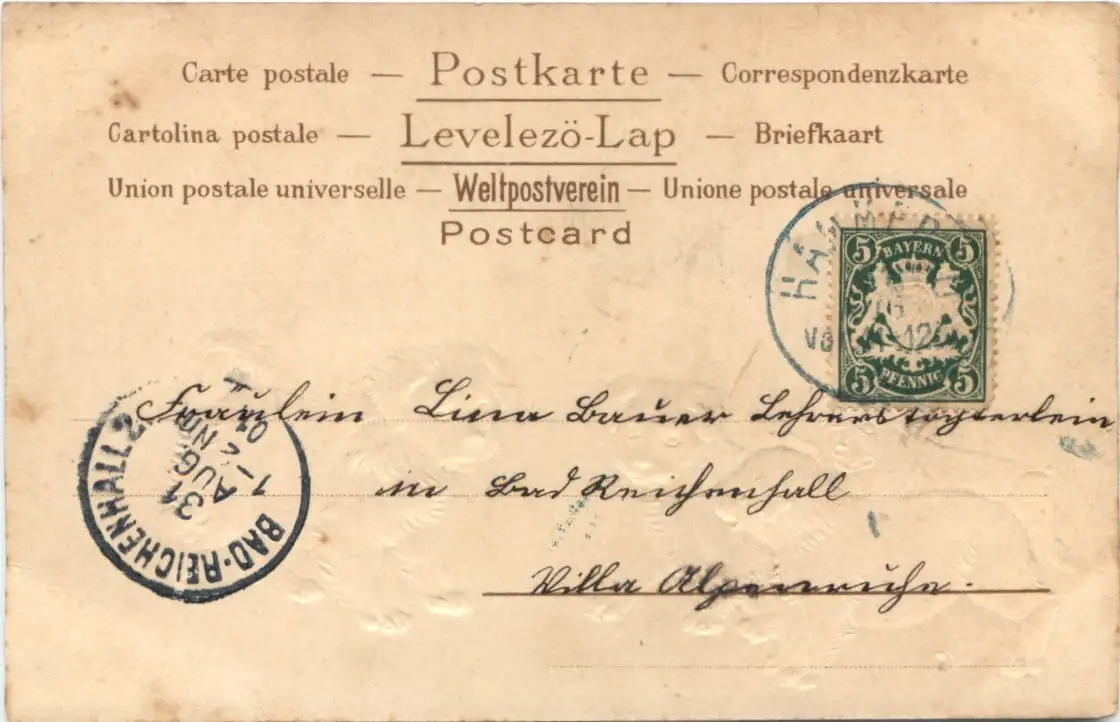 Carte postale — Postkarte — Correspondenzkarte
Cartolina postale — Levelezö-Lap — Briefkaart
Union postale universelle — Weltpostverein — Unione postale universale
Postcard
BAYERN
5 5
5 5
PFENNIG
Fräulein Lina Bauer Lehrerstöchterlein
in Bad Reichenhall
Villa Alpenruhe.
BAD-REICHENHALL 2
31
AUG.
1-2 NM